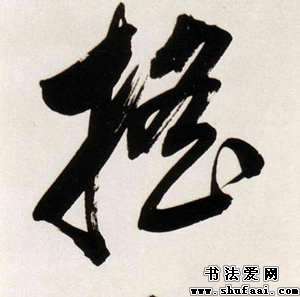 摇
书法爱网
www.shufaai.com